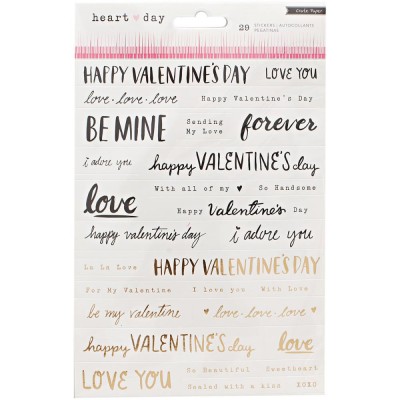 heart ♥ day
Crate Paper
29 STICKERS • AUTOCOLLANTS
PEGATINAS
HAPPY VALENTINE'S DAY LOVE YOU
love • love • love Happy Valentine's Day
BE MINE Sending My Love forever
i adore you happy VALENTINE'S day
With all of my ♥ So Handsome
love Happy Valentine's Day
happy valentine's day i adore you
Lo Lo Love HAPPY VALENTINE'S DAY
For My Valentine I love you With Love
be my valentine ♥ love • love • love ♥
happy VALENTINE'S day love
LOVE YOU So Beautiful Sweetheart
Sealed with a kiss XOXO